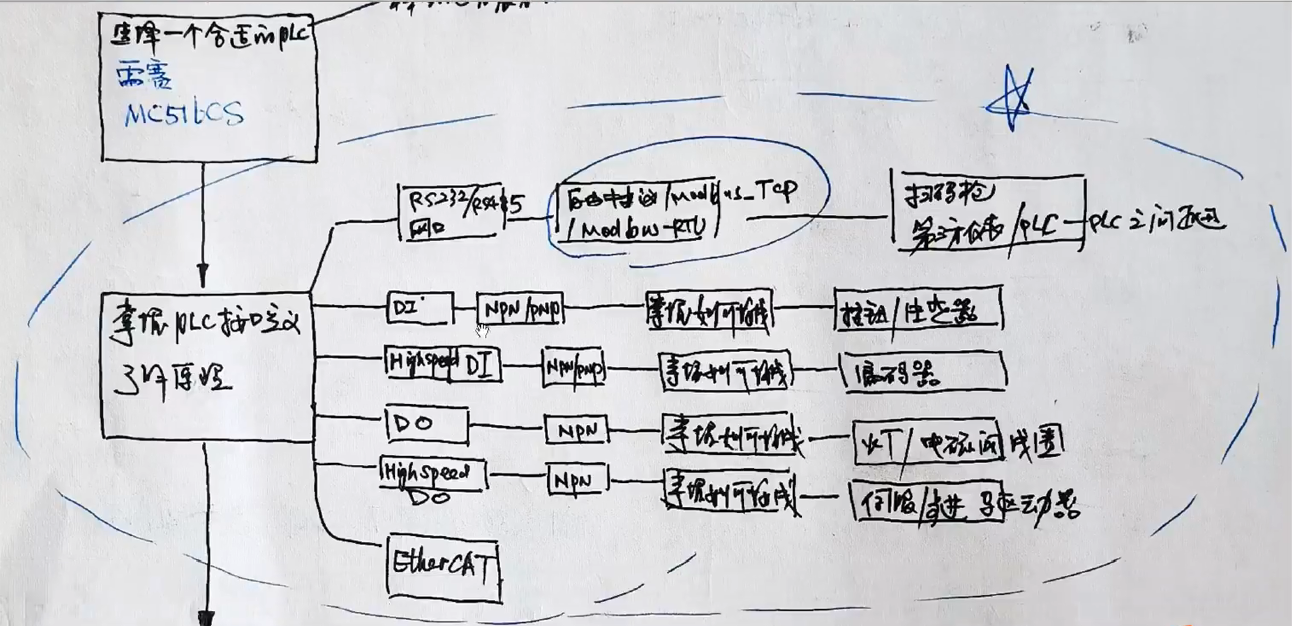 选择一个合适的PLC
雷赛
MC516CS
RS232/RS485
网口
自由协议/Modbus_TCP
/Modbus-RTU
扫码枪
第三方仪表/PLC-PLC之间通迅
掌握PLC接口定义
了解原理
DI
NPN/PNP
掌握如何接线
按钮/传感器
Highspeed DI
NPN/PNP
掌握如何接线
编码器
DO
NPN
掌握如何接线
灯/电磁阀线圈
Highspeed
DO
NPN
掌握如何接线
伺服/步进 驱动器
EtherCAT